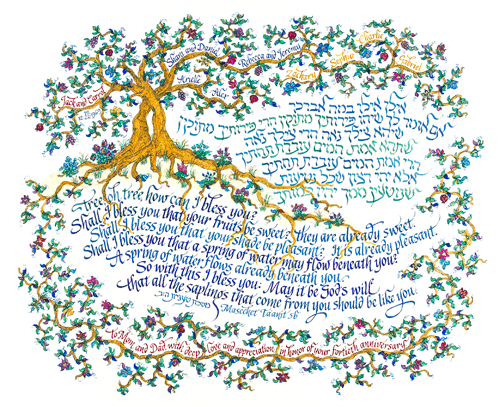 Jack and Carol
Arielle
Alec
Rebecca and Jeremy
Zachary
Sophie
Charlie
אילן אילן במה אברכך
אם אומר לך שיהו פירותיך מתוקין הרי פירותיך מתוקין
שיהא צילך נאה הרי צילך נאה
שתהא אמת המים עוברת תחתיך
הרי אמת המים עוברת תחתיך
אלא יהי רצון שכל נטיעות
שנוטעין ממך יהיו כמותך
Tree oh tree how can I bless you?
Shall I bless you that your fruits be sweet? they are already sweet.
Shall I bless you that your shade be pleasant? It is already pleasant.
Shall I bless you that a spring of water may flow beneath you?
A spring of water flows already beneath you.
So with this I bless you. May it be God's will
that all the saplings that come from you should be like you.
Masechet Ta'anit 5b
to Mom and Dad with deep love and appreciation in honor of your fortieth anniversary